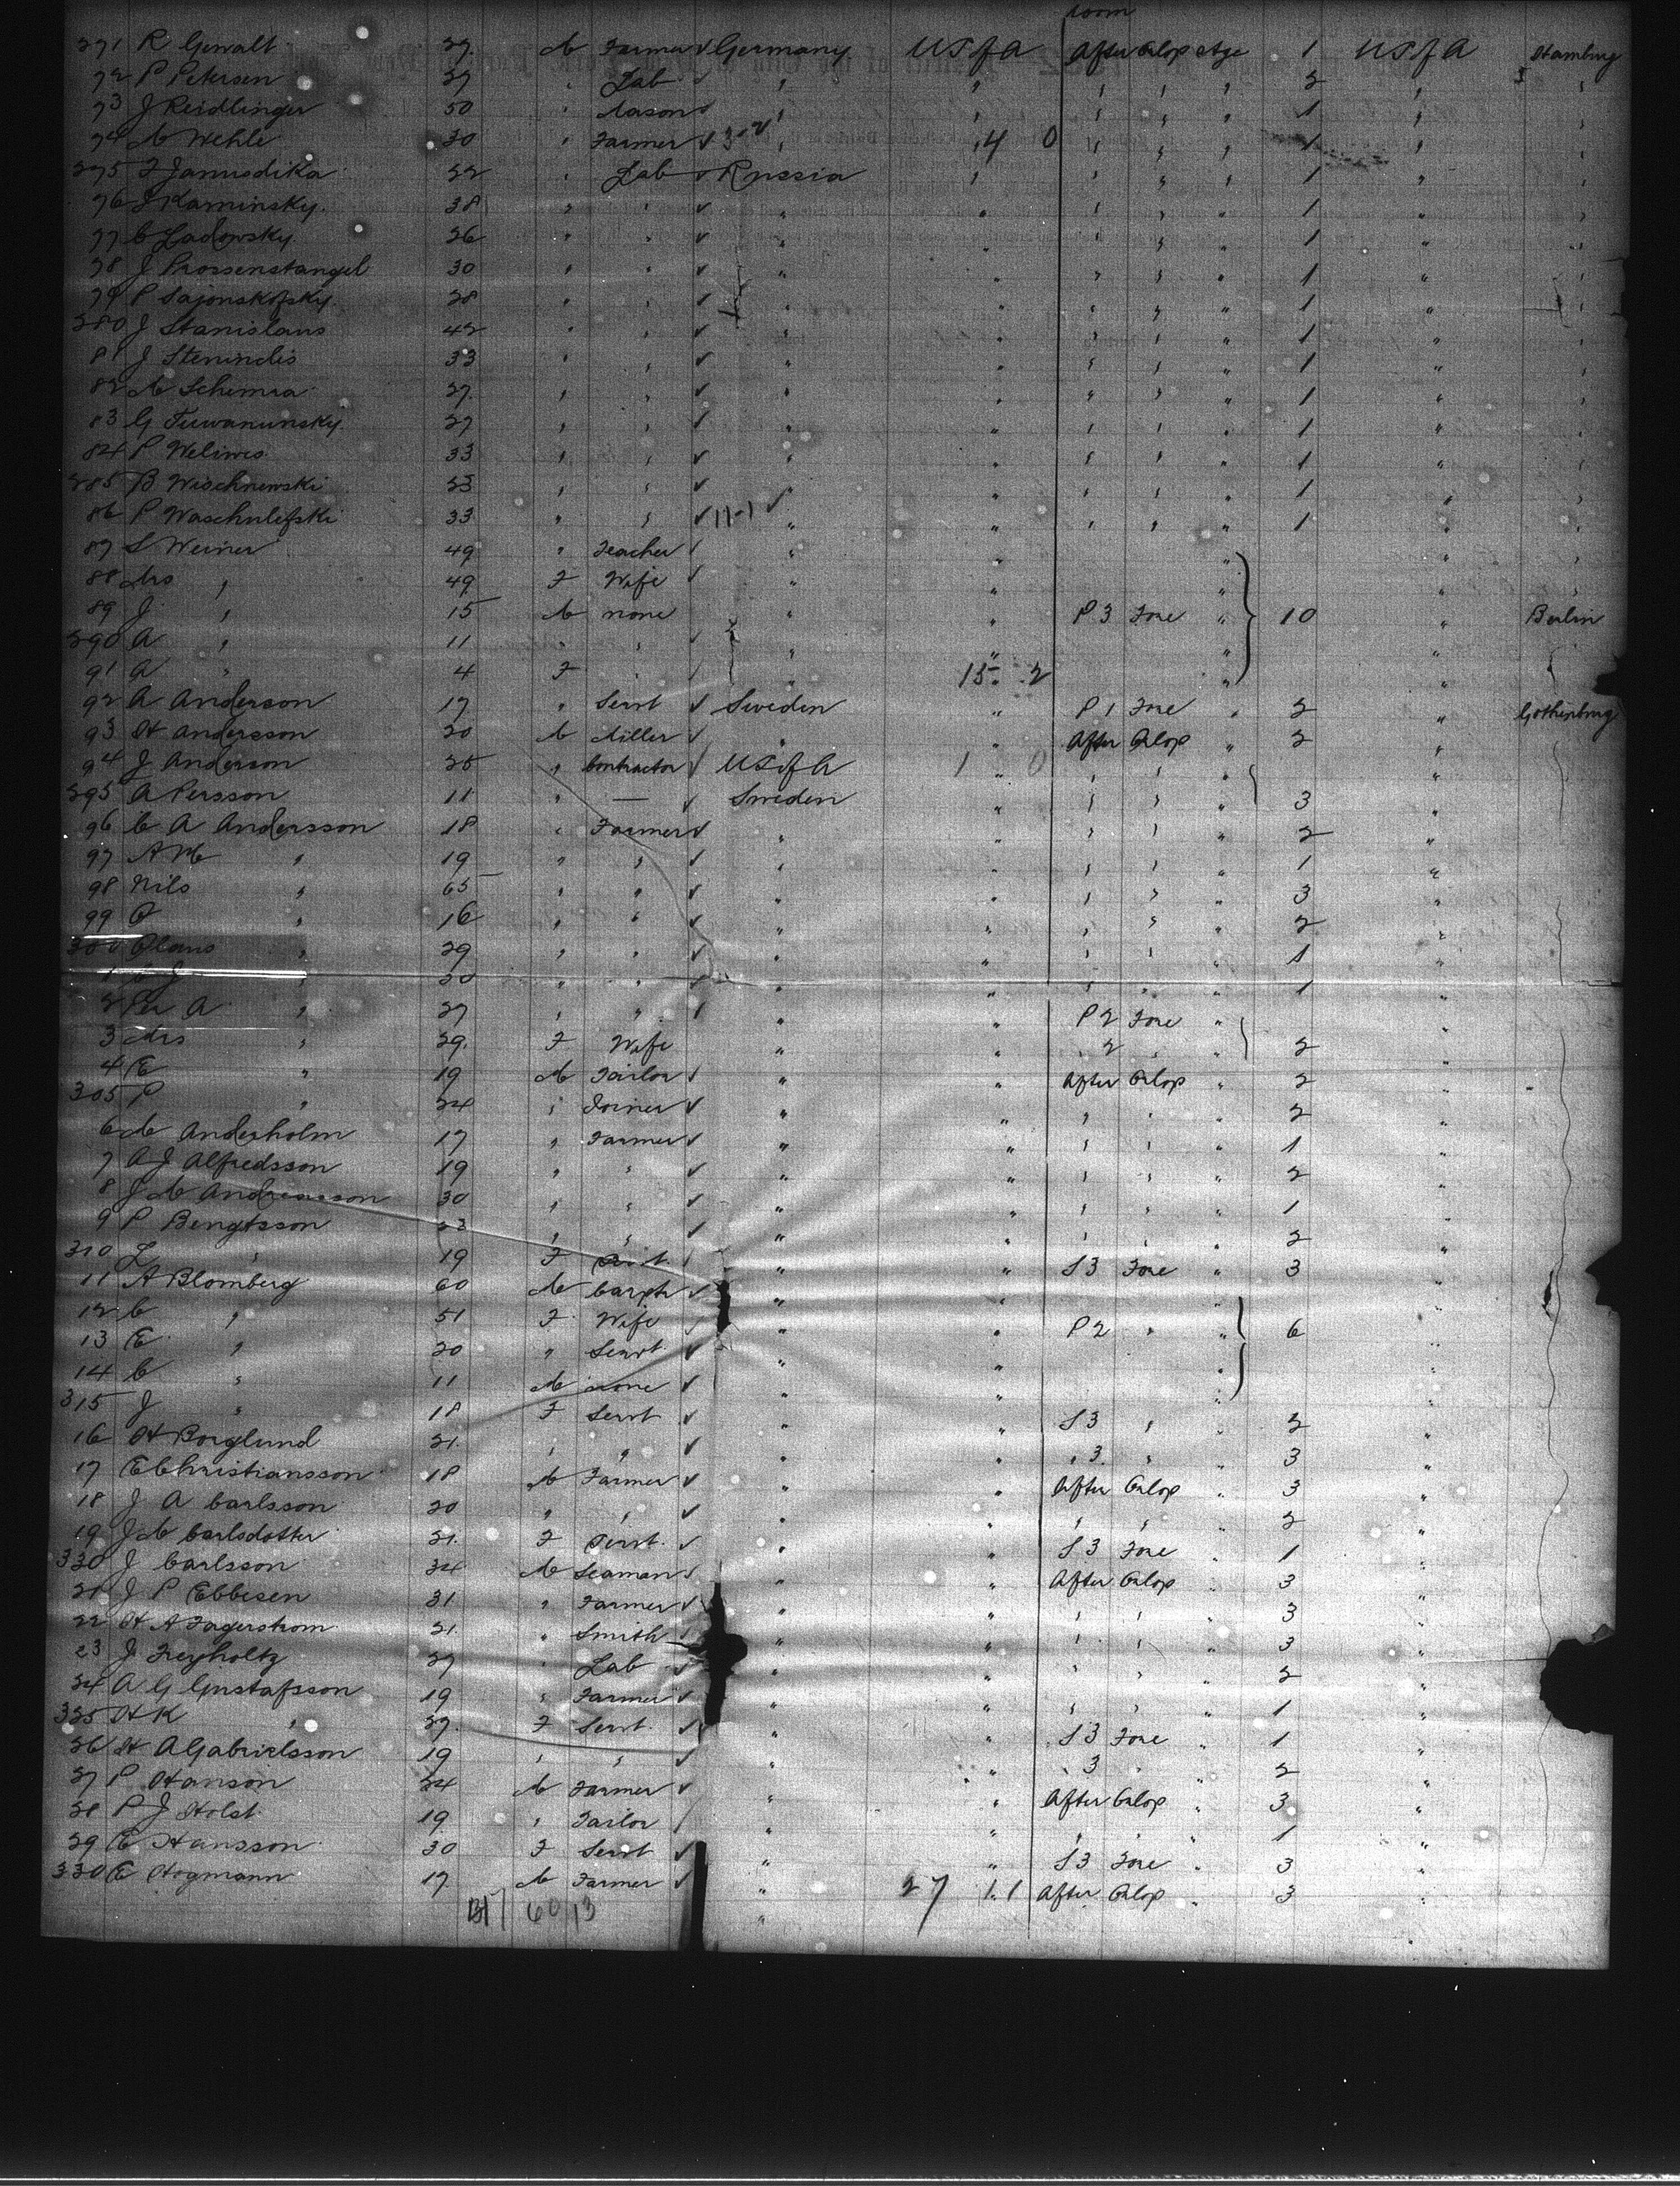 room
271 R Gewalt 27 M Farmer ✓ Germany U S of A After Orlop Stge 1 U S of A Hamburg
72 P Petersen 27 " Lab ✓ " " " " " 2 " "
73 J Reidlinger 50 " Mason ✓ " " " " " 1 " "
74 M Wehle 30 " Farmer ✓ " 14 0 " " " 1 " "
275 F Janusdika 22 " Lab ✓ Russia " " " " 1 " "
76 J Kaminsky 38 " " ✓ " " " " " 1 " "
77 C Ladowsky 26 " " ✓ " " " " " 1 " "
78 J Prossenstangel 30 " " ✓ " " " " " 1 " "
79 P Sajonskofsky 28 " " ✓ " " " " " 1 " "
280 J Stanislaus 42 " " ✓ " " " " " 1 " "
81 J Stenindis 33 " " ✓ " " " " " 1 " "
82 M Schemra 27 " " ✓ " " " " " 1 " "
83 G Tuwanunsky 27 " " ✓ " " " " " 1 " "
84 P Weliwis 33 " " ✓ " " " " " 1 " "
285 B Wischnewski 23 " " ✓ " " " " " 1 " "
86 P Waschulefski 33 " " ✓ 11-1 ✓ " " " " " 1 " "
87 S Weiner 49 " Teacher ✓ " " " "
88 Mrs " 49 F Wife ✓ " " " "
89 J " 15 M none " " P 3 Fore " 10 " Berlin
290 A " 11 " " ✓ " " " "
91 A " 4 F " ✓ " 15 2 " "
92 A Anderson 17 " Servt ✓ Sweden " P 1 Fore " 2 " Gothenburg
93 H Andersson 20 M Miller ✓ " " After Orlop " 2 "
94 J Anderson 25 " Contractor ✓ U S of A 1 0 " " "
295 A Persson 11 " — ✓ Sweden " " " " 3 "
96 C A Andersson 18 " Farmer ✓ " " " " " 2 "
97 A M " 19 " " ✓ " " " " " 1 "
98 Nils " 65 " " ✓ " " " " " 3 "
99 O " 16 " " ✓ " " " " " 2 "
300 Olaus " 29 " " ✓ " " " " " 1 "
1 J " 20 " " ✓ " " " " " 1 "
2 Per A " 27 " " ✓ " " P 2 Fore " "
3 Mrs " 29 F Wife " " " 2 " " 2 "
4 E " 19 M Tailor ✓ " " After Orlop " 2 "
305 P " 24 " Joiner ✓ " " " " " 2 "
6 M Anderholm 17 " Farmer ✓ " " " " " 1 "
7 A J Alfredsson 19 " " ✓ " " " " " 2 "
8 J M Andreasson 30 " " ✓ " " " " " 1 "
9 P Bengtsson 23 " " ✓ " " " " " 2 "
310 L " 19 F Servt ✓ " " S3 Fore " 3 "
11 A Blomberg 60 M Carptr ✓ " " "
12 C " 51 F Wife ✓ " " P 2 " " 6 "
13 E " 20 " Servt ✓ " " "
14 C " 11 M none ✓ " " "
315 J " 18 F Servt ✓ " " S3 " " 2 "
16 H Borglund 21 " " ✓ " " " 3 " " 3 "
17 E Christiansson 18 M Farmer ✓ " " After Orlop " 3 "
18 J A Carlsson 20 " " ✓ " " " " " 2 "
19 J M Carlsdotter 21 F Servt ✓ " " S3 Fore " 1 "
320 J Carlsson 34 M Seaman ✓ " " After Orlop " 3 "
21 J P Ebbesen 31 " Farmer ✓ " " " " " 3 "
22 H A Fagerstrom 21 " Smith ✓ " " " " " 3 "
23 J Freyholtz 27 " Lab ✓ " " " " " 2 "
24 A G Gustafsson 19 " Farmer ✓ " " " " " 1 "
325 H K " 27 F Servt ✓ " " S3 Fore " 1 "
26 H A Gabrielsson 19 " " ✓ " " " 3 " " 2 "
27 P Hanson 24 M Farmer ✓ " " After Orlop " 3 "
28 P J Holst 19 " Tailor ✓ " " " " " 1 "
29 E Hansson 30 F Servt ✓ " " S3 Fore " 3 "
330 E Hogmann 17 M Farmer ✓ " 27 11 After Orlop " 3 "
60 13